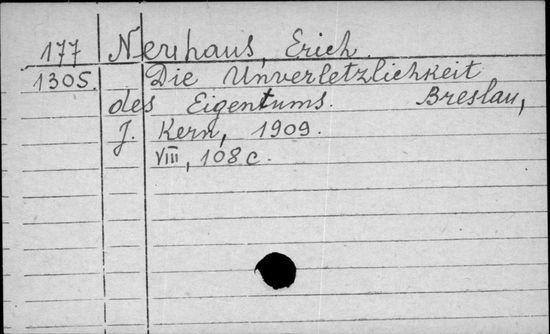 177 Neuhaus, Erich.
1305. Die Unverletzlichkeit
des Eigentums. Breslau,
J. Kern, 1909.
VIII, 108 c.